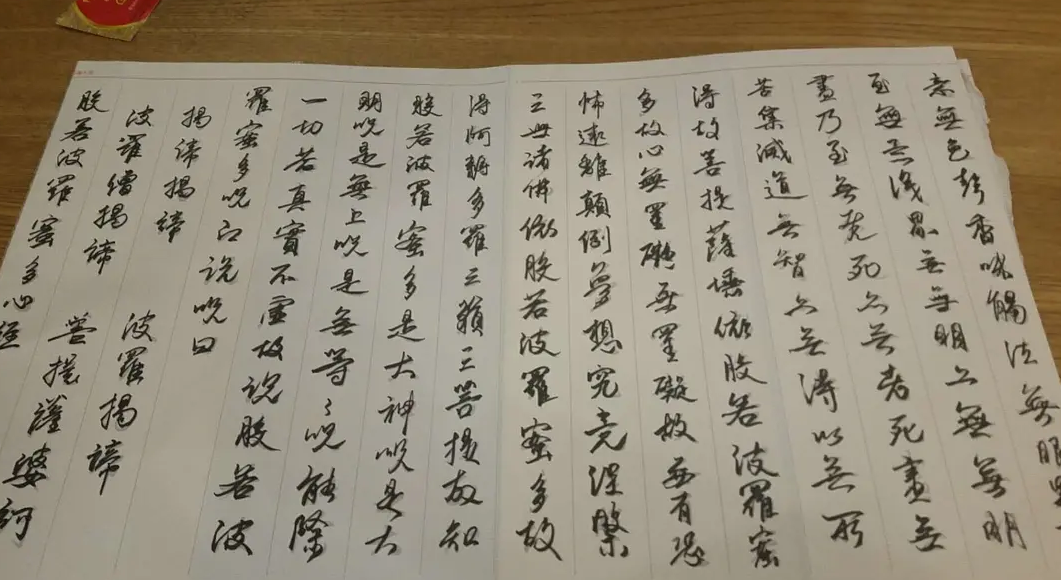 意無色聲香味觸法無眼界
至無意識界無無明亦無無明
盡乃至無老死亦無老死盡無
苦集滅道無智亦無得以無所
得故菩提薩埵依般若波羅蜜
多故心無罣礙無罣礙故無有恐
怖遠離顛倒夢想究竟涅槃
三世諸佛依般若波羅蜜多故
得阿耨多羅三藐三菩提故知
般若波羅蜜多是大神咒是大
明咒是無上咒是無等々咒能除
一切苦真實不虛故說般若波
羅蜜多咒即說咒曰
揭諦揭諦 波羅揭諦
波羅僧揭諦 菩提薩婆訶
般若波羅蜜多心經